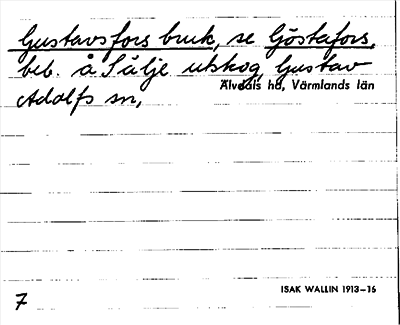 Gustavsfors bruk, se Göstafors,
beb. å Sälje utskog, Gustav
Älvdals hd, Värmlands län
Adolfs sn,
ISAK WALLIN 1913–16
7